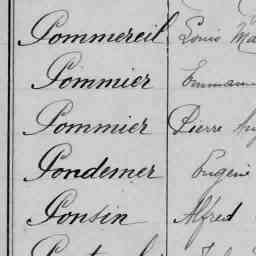 Pommereil Louis Ma
Pommier Emmanu
Pommier Pierre Aug
Pondemer Eugène
Ponsin Alfred